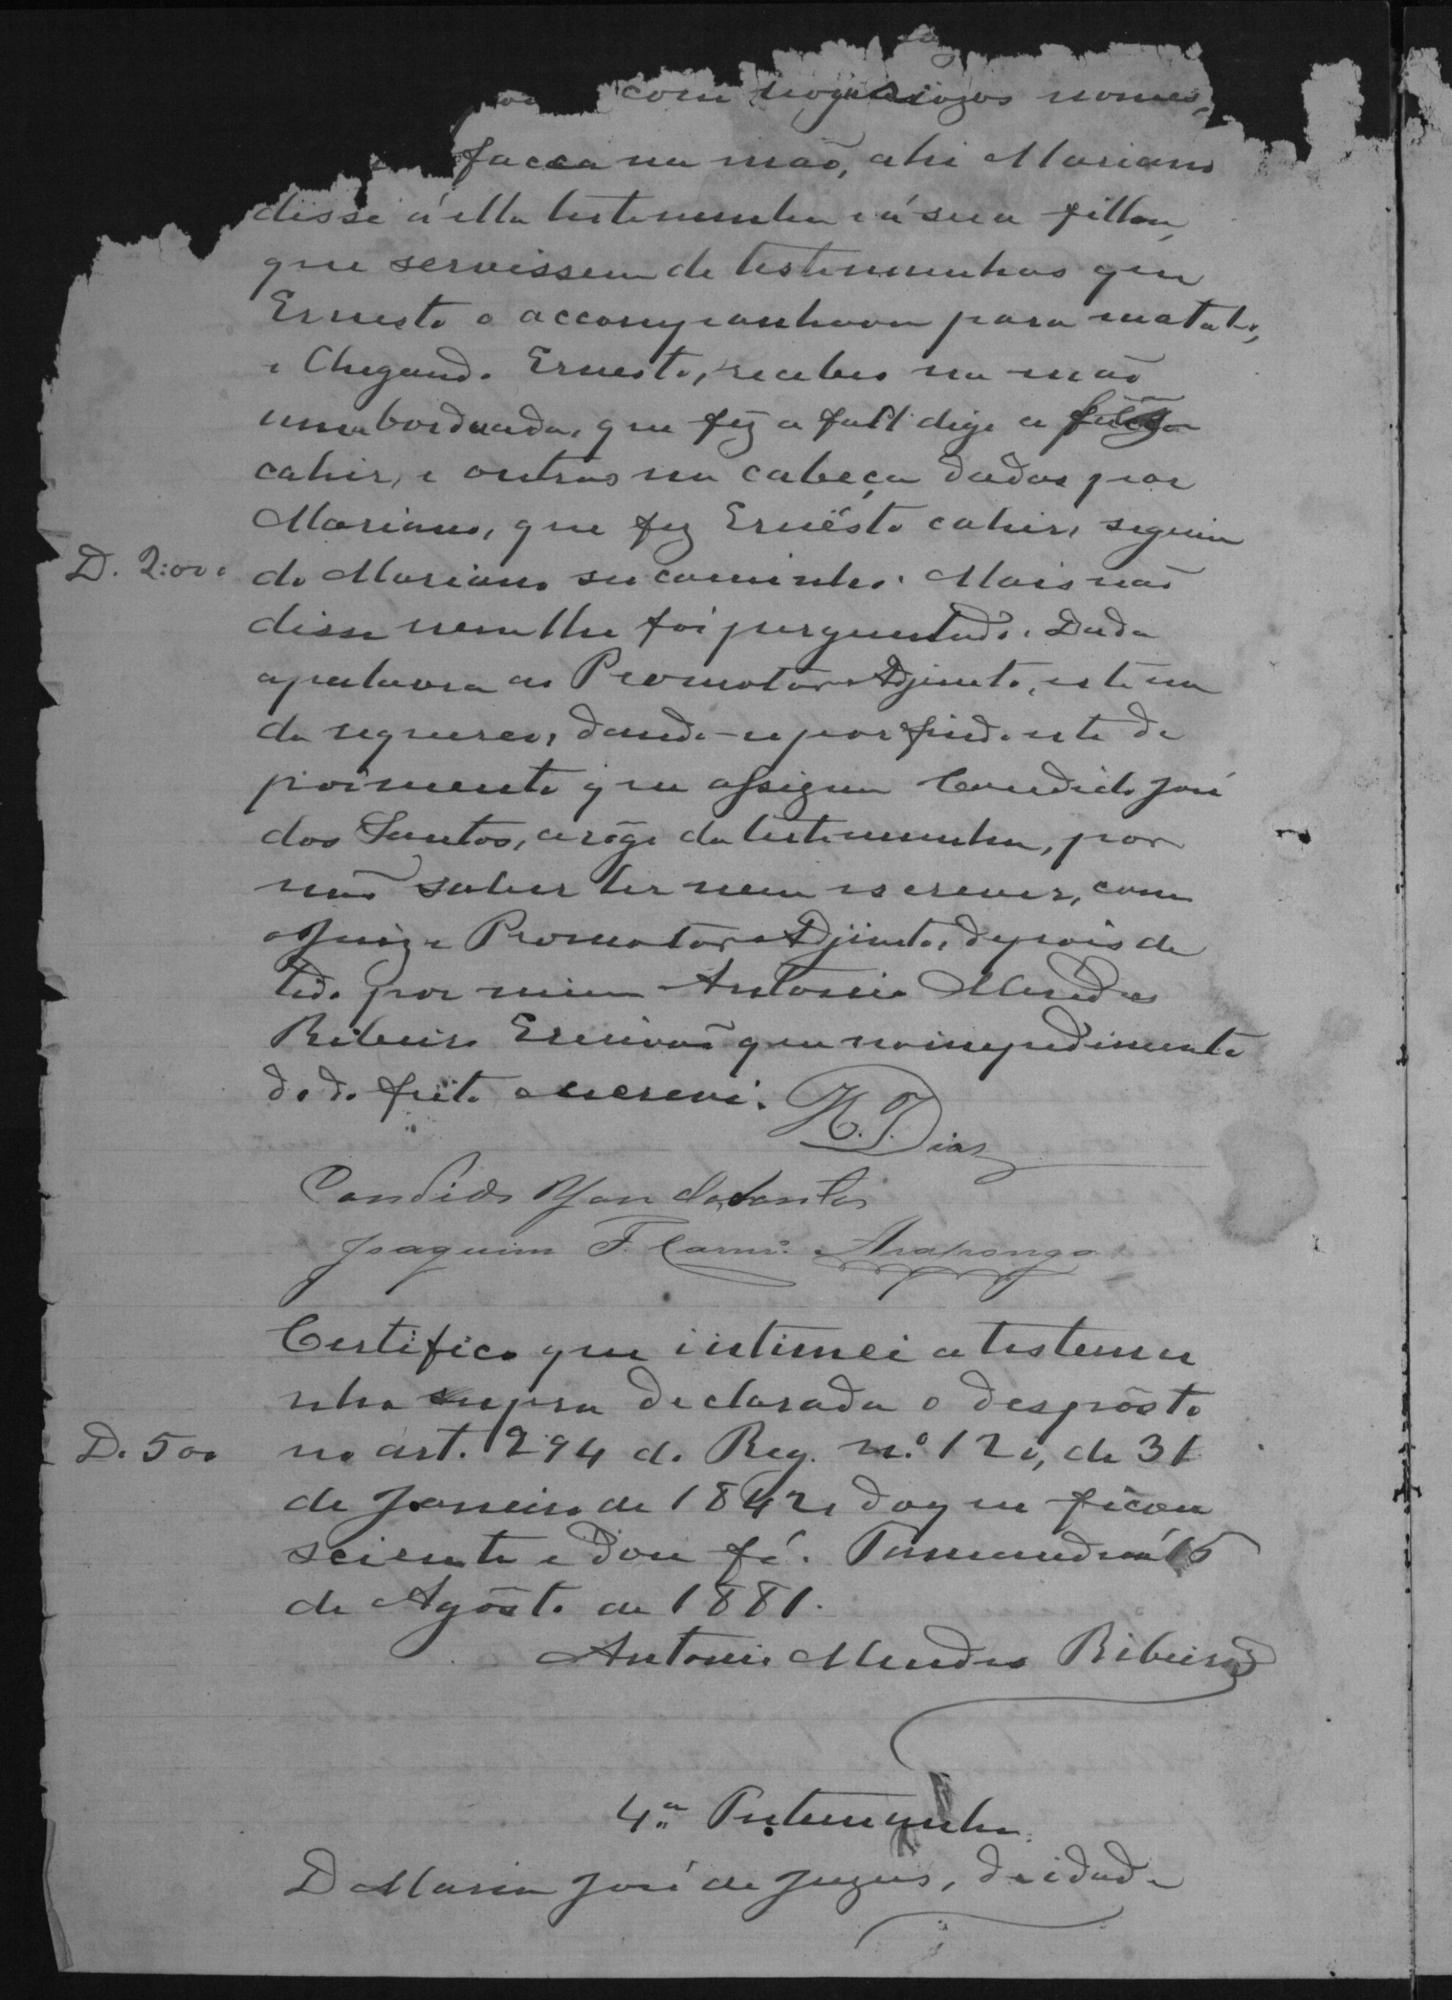 com nomes,
facca na mão, ahi Mariano
disse á ella testemunha e á sua filha,
que servissem de testemunhas que
Ernesto o accompanhava para matal-o,
e Chegando Ernesto, recebeo na mão
uma bordoada, que fez a fall digo a
cahir, e outras na cabeça dadas por
Mariano, que fez Ernésto cahir, seguin
do Mariano seu caminho. Mais não
D. 2:000
disse nem lhe foi perguntado. Dada
a palavra ao Promotor Adjunto, este na
da requereo, dando-se por findo este de
poimento que assigna Candido José
dos Santos, a rôgo da testemunha, por
não saber ler nem escrever, com
o Juiz e Promotor Adjunto, depois de
lido por mim Antonio Mendes
Ribeiro Escrivão que no impedimento
do do feito o escrevi.
H. J. Dias
Candido Jose dos Santos
Joaquim F. Carnrº Araponga
Certifico que intimei a testemu
nha supra declarada o despôsto
no art. 294 do Reg. n.º 120, de 31
D. 500
de Janeiro de 1842, do que ficou
sciente e dou fé. Tamanduá 16
de Agôsto de 1881.
Antonio Mendes Ribeiro
4.ª Testemunha
D Maria José de Jezus, de idade